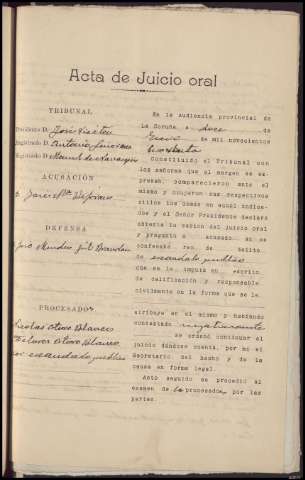 Acta de Juicio oral
TRIBUNAL
Presidente D. José
Magistrado D. Antonio
Magistrado D. Manuel
ACUSACIÓN
D. José
DEFENSA
PROCESADO
Nicolás Otero Blanco
Otero Blanco
por escándalo público
En la Audiencia provincial de
La Coruña a doce de
de mil novecientos
Constituido el Tribunal con
los señores que al margen se ex-
presan, comparecieron ante el
mismo y ocuparon sus respectivos
sitios los demás en aquél indica-
dos y el Señor Presidente declaró
abierta la sesión del juicio oral
y preguntó a acusado si se
confesaba reo de delito
de escándalo público
que se le imputa en escrito
de calificación y responsable
civilmente en la forma que se le
atribuye en el mismo y habiendo
contestado negativamente
se ordenó continuar el
juicio dándose cuenta, por mí el
Secretario del hecho y de la
causa en forma legal.
Acto seguido se procedió al
examen de los procesados por las
partes.